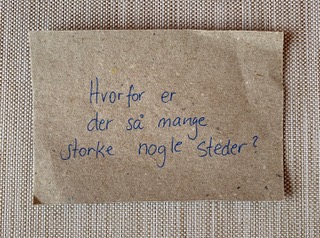 Hvorfor er
der så mange
storke nogle steder?